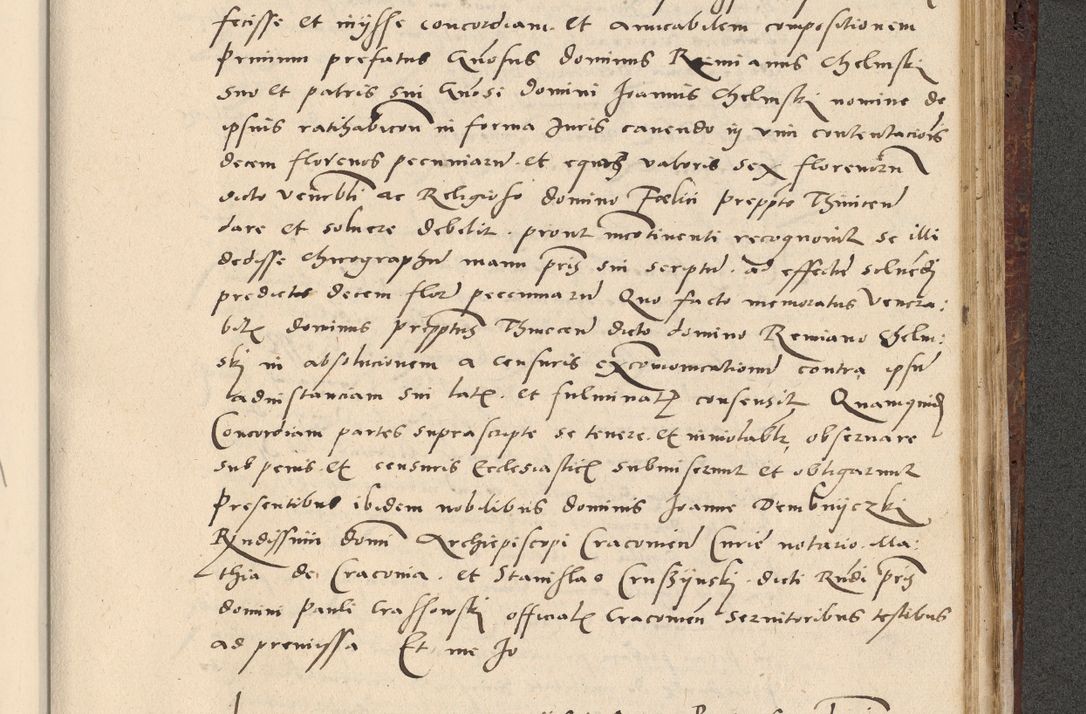 fecisse et inysse concordiam. et amicabilem compositionem
Primum prefatus Gnosus dominus Remianus Chelmskj
suo et patris sui Gnosi domini Joannis Chelmskj nomine de
ipsius ratihabicon in forma Juris cavendo in vim contentacionis
decem florenos pecuniarum et equm valoris sex florenorum
dicto venerabli ac Religioso domino Foelici preppto Thinicen
dare et soluere debebit. prout incontinenti recognovit se illi
dedisse Chirographum manu prius sui scriptum. ad effectum soluendi
predictos decem floren peccuniarum Quo facto memoratus Venera:
bilis dominus prepptus Thinecen dicto domino Remiano Chelm:
skj in absolucionem a censuris excommunicationum contra ipsum
ad instanciam sui latis. et fulminatis consensit Quamquidem
Concordiam partes suprascripte se tenere. et inviolabiliter observare
sub penis. et censuris Ecclesiasticis submiserunt et obligarunt
Presentibus ibidem nobilibus dominis Joanne Dembnyczki
Rndissimi domi Archiepiscopi Cracovien Curie notario. Ma:
thia de Cracovia. et Stanislao Crusszynskj. dicti Rndi pris
domini Pauli Crassowskj officialis Cracovien servitoribus testibus
ad premissa Et me Jo